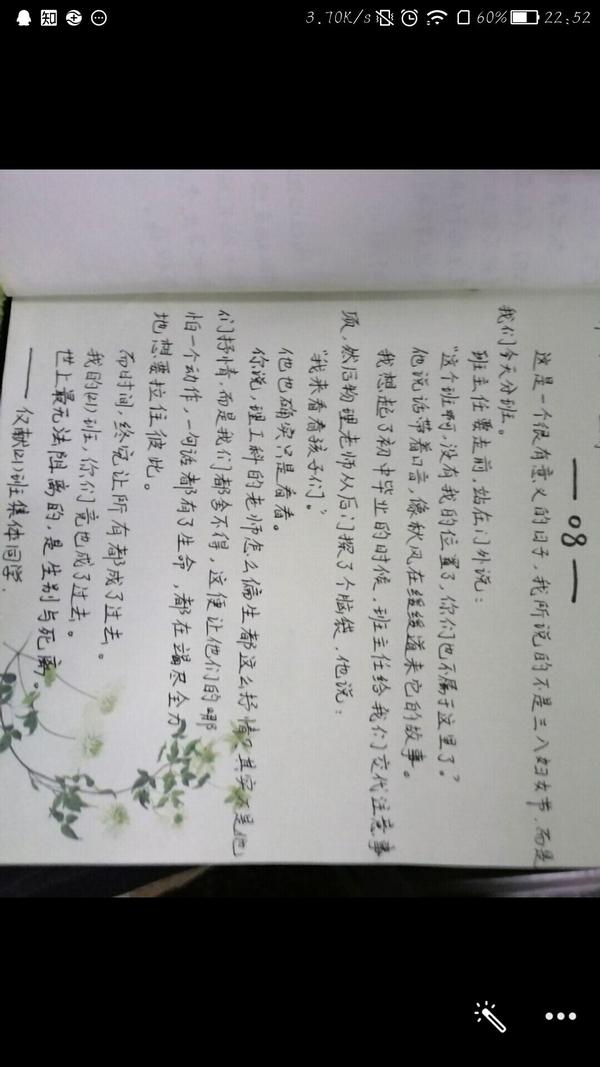 知
3.70K/s
60%
22:52
— 08 —
这是一个很有意义的日子,我所说的不是三八妇女节,而是
我们今天分班。
班主任要走前,站在门外说:
“这个班啊,没有我的位置了,你们也不属于这里了。”
他说话带着口音,像秋风在缓缓道来它的故事。
我想起了初中毕业的时候,班主任给我们交代注意事
项,然后物理老师从后门探了个脑袋,他说:
“我来看看孩子们。”
他也确实只是看看。
你说,理工科的老师怎么偏生都这么抒情?其实不是他
们抒情,而是我们都舍不得,这便让他们的哪
怕一个动作,一句话都有了生命,都在竭尽全力
地想要拉住彼此。
而时间,终究让所有都成了过去。
我的(21)班,你们竟也成了过去。
世上最无法阻离的,是生别与死离。
——仅献(21)班集体同学.